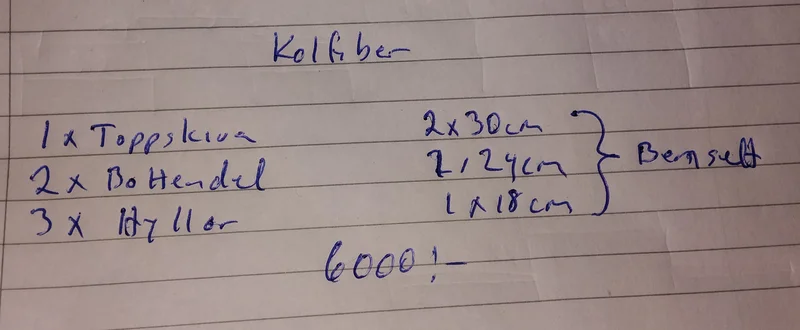 Kolfiber
1 x Toppskiva 2x30cm
2 x Bottendel 2x24cm } Benset
3 x Hyllor 1x18cm
6000:-